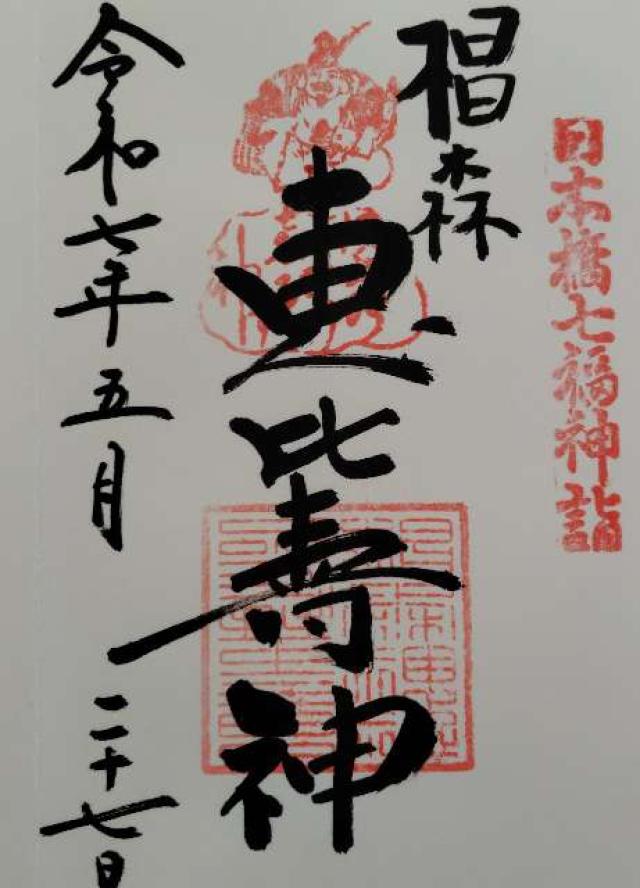 日本橋七福神詣
椙森
恵比寿神
令和七年五月二十七日